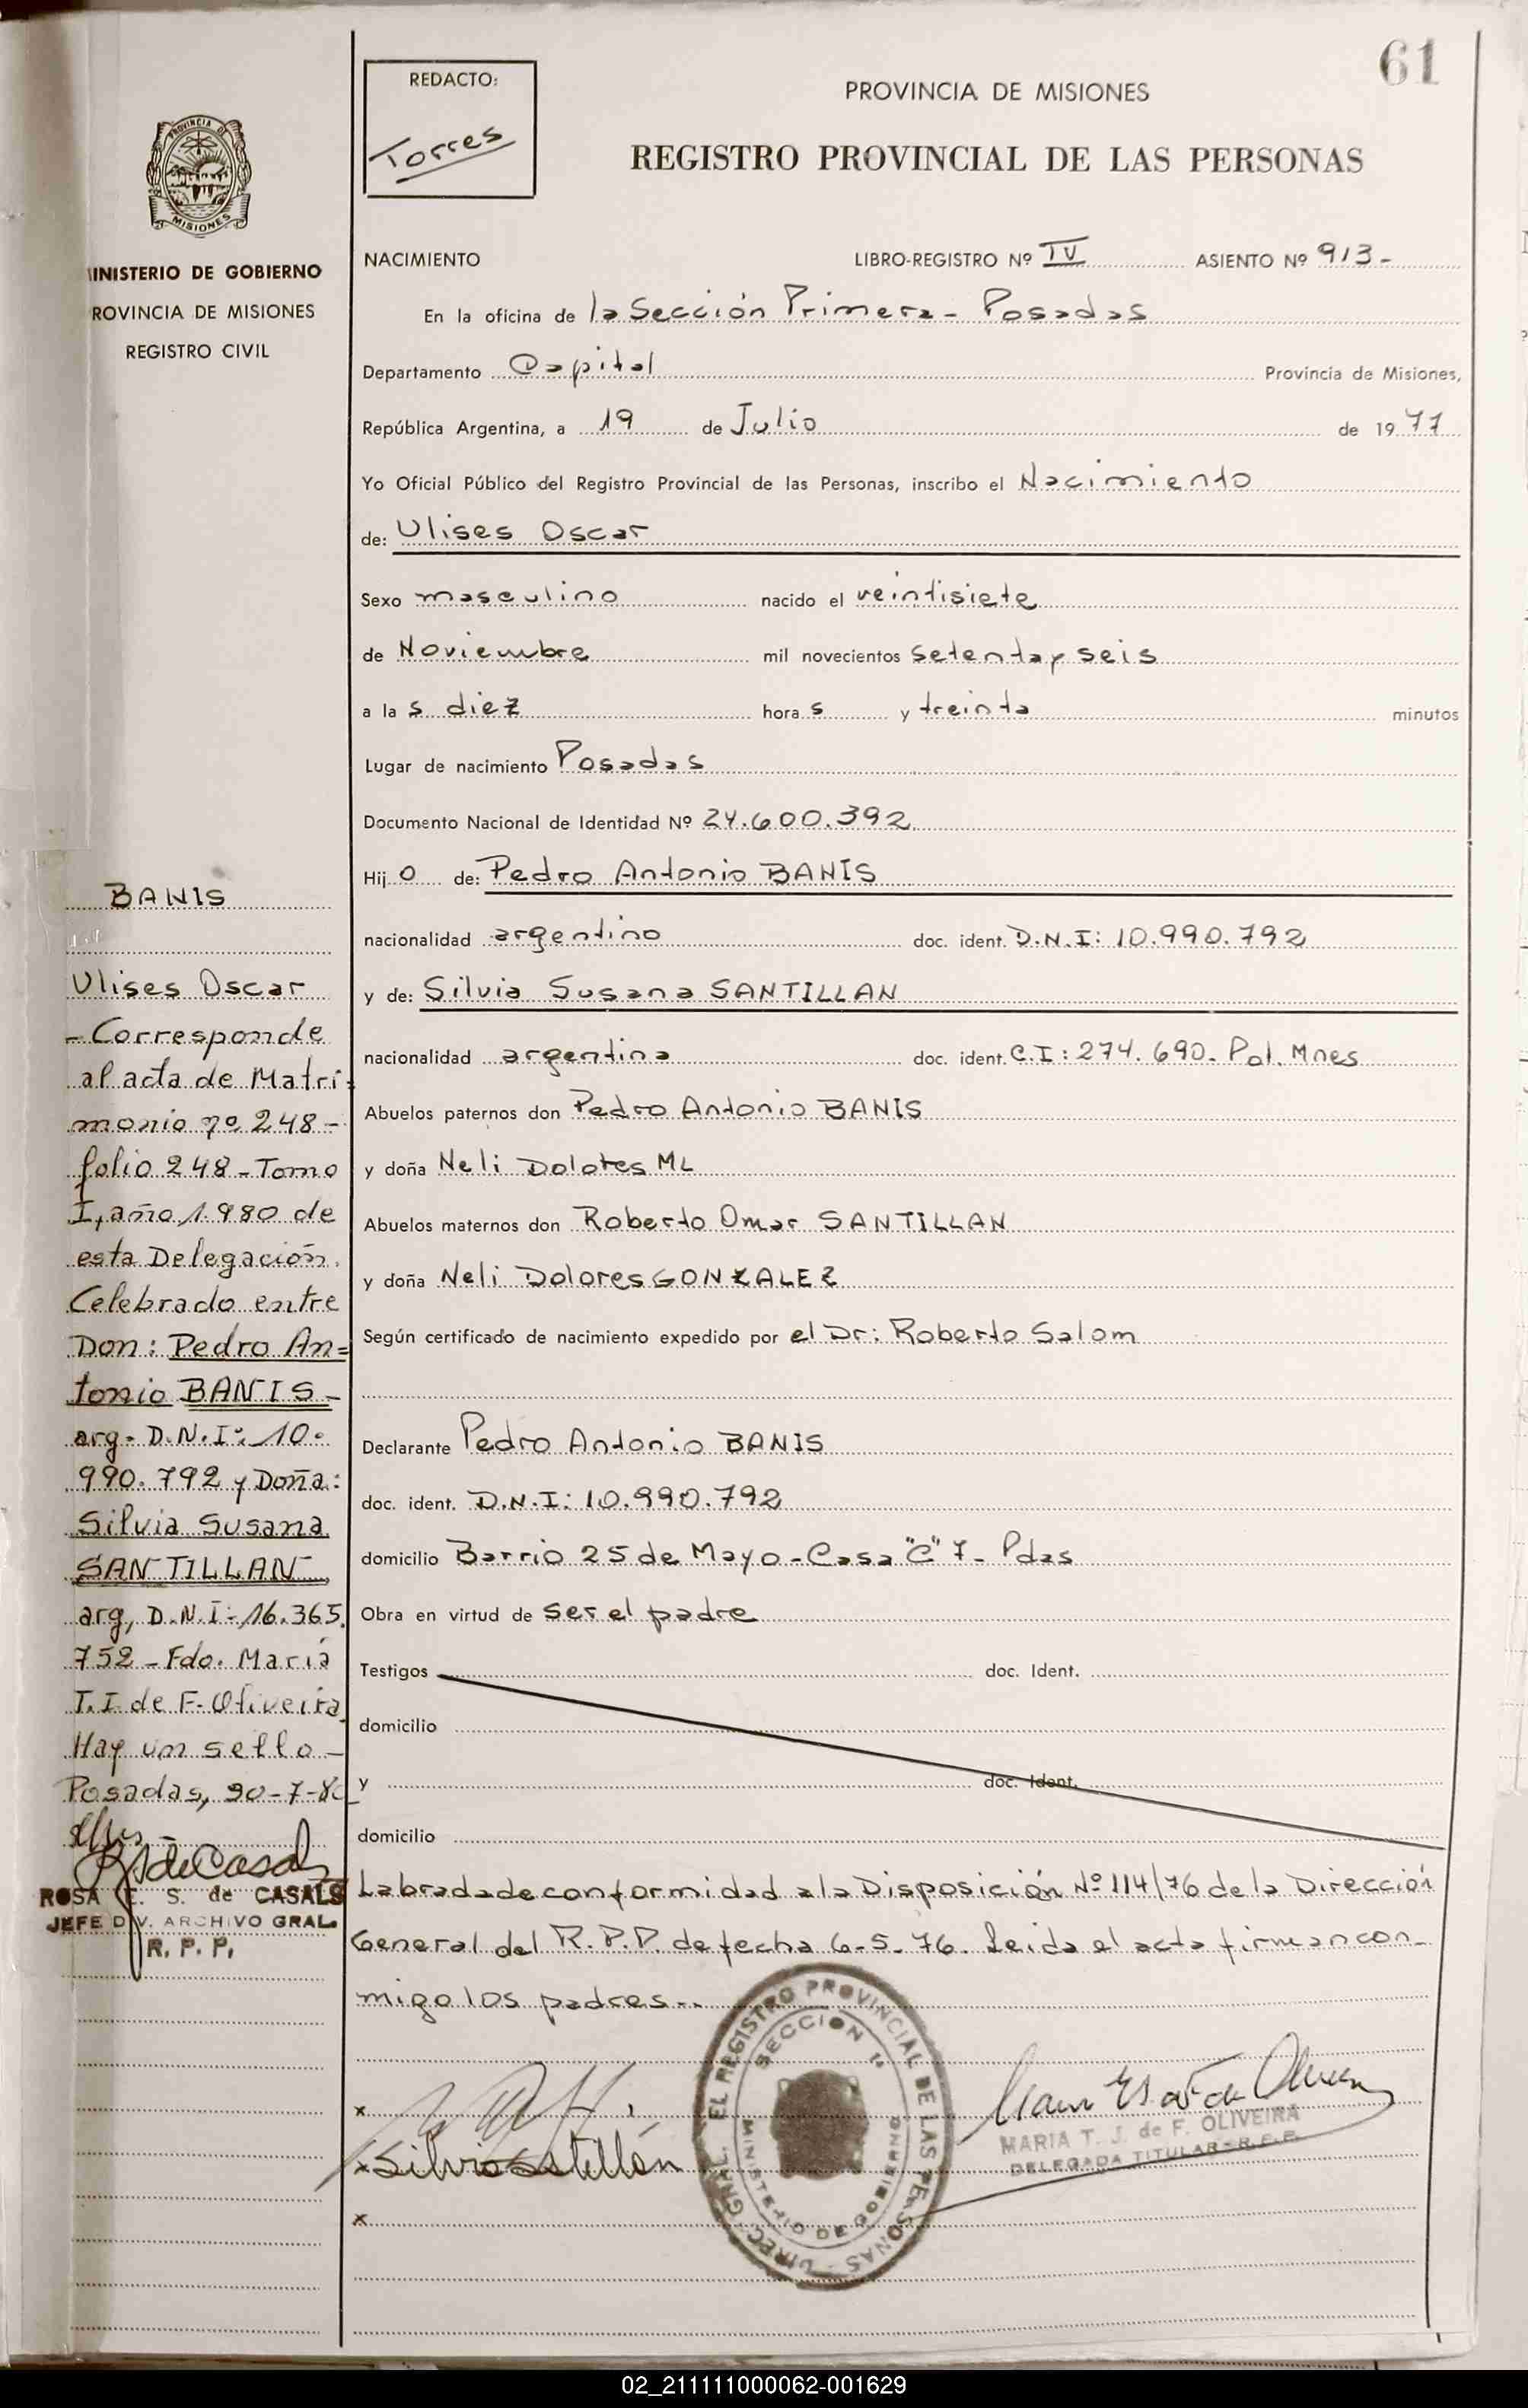 61
REDACTO:
Torres
PROVINCIA DE MISIONES
REGISTRO PROVINCIAL DE LAS PERSONAS
PROVINCIA D
MISIONES
INISTERIO DE GOBIERNO
ROVINCIA DE MISIONES
REGISTRO CIVIL
NACIMIENTO LIBRO-REGISTRO Nº IV ASIENTO Nº 913-
En la oficina de la Sección Primera - Posadas
Departamento Capital Provincia de Misiones,
República Argentina, a 19 de Julio de 1977
Yo Oficial Público del Registro Provincial de las Personas, inscribo el Nacimiento
de: Ulises Oscar
Sexo masculino nacido el veintisiete
de Noviembre mil novecientos setenta y seis
a la s diez hora s y treinta minutos
Lugar de nacimiento Posadas
Documento Nacional de Identidad Nº 24.600.392
Hij o de: Pedro Antonio BANIS
nacionalidad argentino doc. ident. D.N.I: 10.990.792
y de: Silvia Susana SANTILLAN
nacionalidad argentina doc. ident. C.I: 274.690- Pol. Mnes
Abuelos paternos don Pedro Antonio BANIS
y doña Neli Dolores ML
Abuelos maternos don Roberto Omar SANTILLAN
y doña Neli Dolores GONZALEZ
Según certificado de nacimiento expedido por el Dr: Roberto Salom
Declarante Pedro Antonio BANIS
doc. ident. D.N.I: 10.990.792
domicilio Barrio 25 de Mayo - Casa "C" 7- Pdas
Obra en virtud de ser el padre
Testigos doc. Ident.
domicilio
y doc. Ident.
domicilio
Labrada de conformidad a la Disposición Nº 114/76 de la Dirección
General del R.P.P. de fecha 6-5-76. Leida el acta firman con-
migo los padres..
x
x Silvia Santillán
x
DIREC. GRAL. EL REGISTRO PROVINCIAL DE LAS PERSONAS
SECCION 1ª
MINISTERIO DE GOBIERNO
MARIA T. J. de F. OLIVEIRA
DELEGADA TITULAR - R.P.P.
BANIS
Ulises Oscar
- Corresponde
al acta de Matri=
monio nº 248-
folio 248-Tomo
I, año 1.980 de
esta Delegación.
Celebrado entre
Don: Pedro An=
tonio BANIS-
arg- D.N.I: 10.
990.792 y Doña:
Silvia Susana
SANTILLAN
arg, D.N.I- 16.365.
752 - Fdo. Maria
T.I. de F. Oliveira
Hay un sello -
Posadas, 30-7-80
ROSA E. S. de CASALS
JEFE DIV. ARCHIVO GRAL.
R. P. P.
02_211111000062-001629